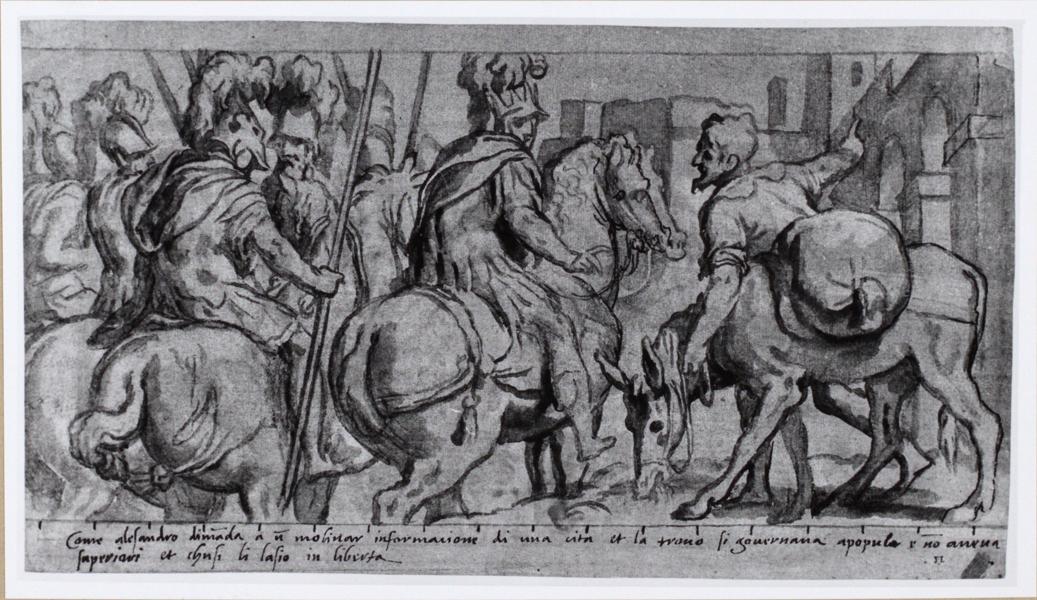 Come alesandro dim̄ada à ū molinar informatione di una cita et la trovo si governava apopulo e nō aveva
superiori et chusi li lasio in liberta
51